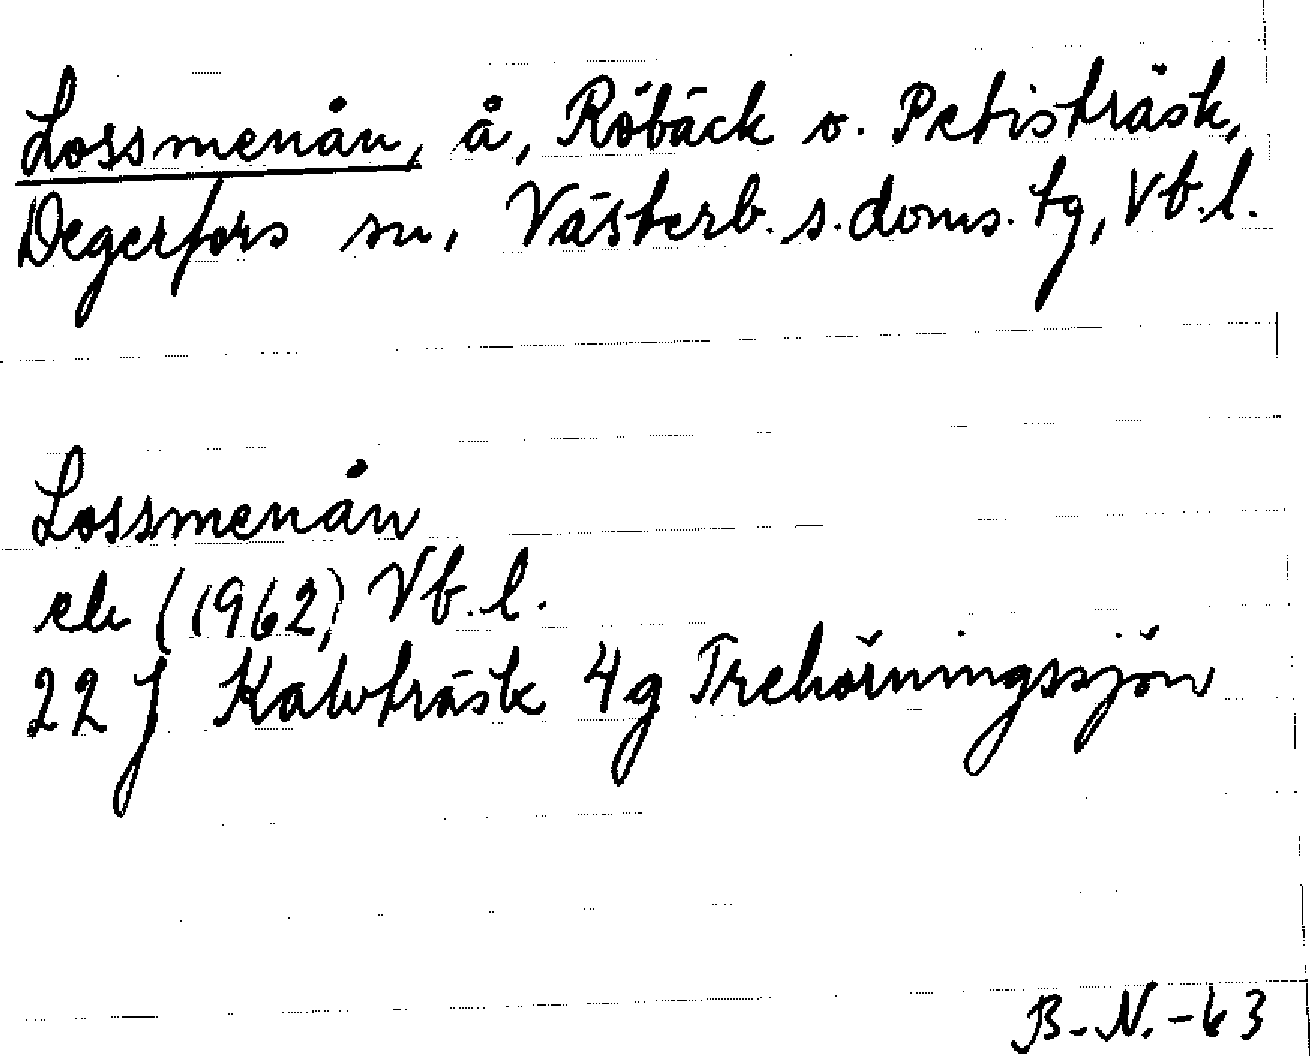 Lossmenån, å, Röbäck o. Petisträsk,
Degerfors sn, Västerb. s. doms. tg, Vb. l.
Lossmenån
ek (1962) Vb. l.
22 J Kalvträsk 4g Trehörningssjön
B-N.-63